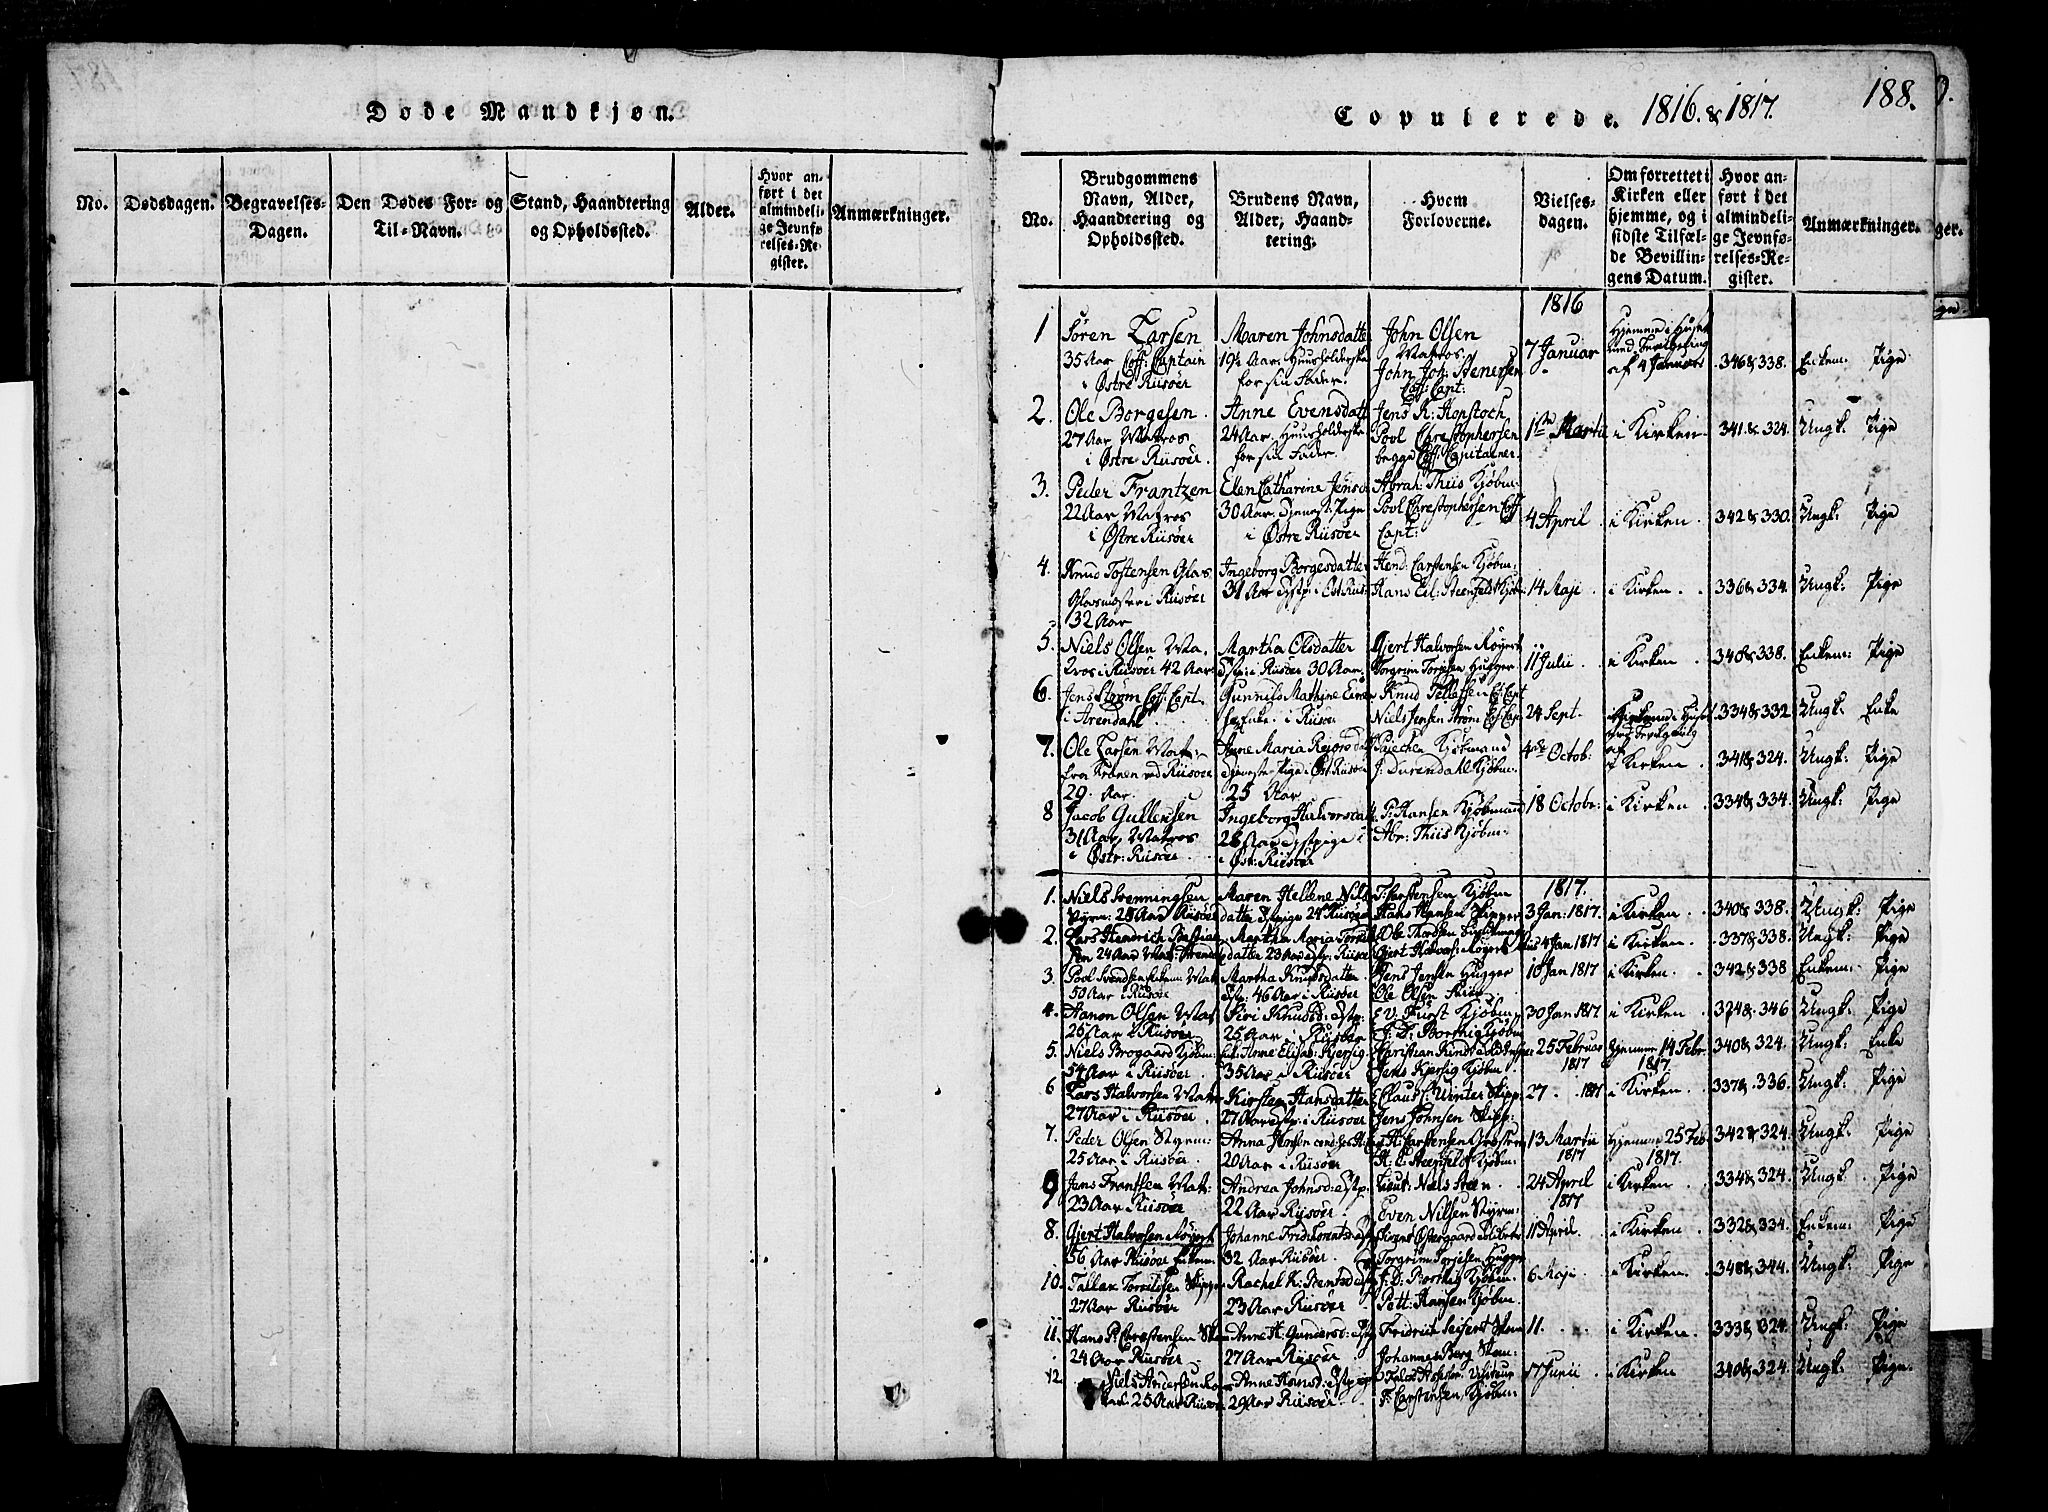 Døde Mandkjøn.
No.
Dødsdagen.
Begravelses-
Dagen.
Den Dødes For- og
Til-Navn.
Stand, Haandtering
og Opholdssted.
Alder.
Hvor an-
ført i det
almindeli-
ge Jevnfø-
relses-Re-
gister.
Anmærkninger.
188.
Copulerede. 1816. & 1817.
No.
Brudgommens
Navn, Alder,
Haandtering og
Opholdssted.
Brudens Navn,
Alder, Haand-
tering.
Hvem
Forloverne.
Vielses-
dagen.
Om forrettet i
Kirken eller
hjemme, og i
sidste Tilfæl-
de Bevillin-
gens Datum.
Hvor an-
ført i det
almindeli-
ge Jevnfø-
relses-Re-
gister.
Anmærkninger.
1816
1 Søren Larsen
35 Aar Coff: Captain
i Østre Riisøer
Maren Johnsdatter
19½ Aar. Huusholderske
for sin Fader.
John Olsen
Matros.
John Joh: Stenersen
Coff: Capt:
7 Januar
Hjemme i Huset
med Bevilgning
af 4 Januar
346 & 338. Enkem: Pige
2. Ole Borgesen
27 Aar Matros
i Østre Riisøer.
Anne Evensdatt
24 Aar. Huusholderske
for sin Fader.
Jens R: Kopstoch
Povl Christophersen
begge Coff: Capitainer
1ste Martii i Kirken 341 & 324. Ungk: Pige
3. Peder Frantzen
22 Aar Matros
i Østre Riisøer
Ellen Catharine Jensd
30 Aar. Tjenest: Pige
i Østre Riisøer
Abrah: Thiis Kjøbm:
Povl Christophersen Coff
Capt:
4 April i Kirken. 342 & 330. Ungk: Pige
4. Knud Tostensen Glas
Glasmester i Riisøer
32 Aar
Ingeborg Borgesdatter
31 Aar
Hend: Carstensen Kjøbm:
Hans Eil: Steenfeldt Kjøb
14 Maji i Kirken. 336 & 334. Ungk: Pige
5. Niels Olsen Ma-
tros i Riisøer 42 Aar
Martha Olsdatter
i Riisøer 30 Aar
Gjert Halvorsen Røyert
Torgrim Torjesen Hugger
11 Julii i Kirken 340 & 338. Enkem: Pige
6. Jens Strøm Coff: Capt
i Arendahl
Gunnild Mathine Even
Enke. i Riisøer
Knud Tellefsen Cof: Capt
Niels Jensen Strøm Cof: Capt
24 Sept. 334 & 332 Ungk: Enke
7. Ole Larsen Matr:
fra Kranen ved Riisøer
29. Aar.
Anne Maria
Tjeneste-Pige i Øst Riisøer
25 Aar
Kjøbmand
J: Durendahl Kjøbm.
4de Octob: i Kirken 341 & 324. Ungk: Pige
8 Jacob Gullensen
31 Aar Matros
i Østr: Riisøer
Ingeborg Halvorsdatt
28 Aar Tjstpige i
i Øst: Riisøer
P: Hansen Kjøbmand
Abr: Thiis Kjøbm:
18 Octobr: i Kirken 334 & 334. Ungk: Pige
1817.
1. Niels Svenningsen
Styrm: 28 Aar Riisøer
Maren Hellene Nils
datter 24 Riisøer
T: Carstensen Kjøbm
Hans Hansen Skipper
3 Jan: 1817. i Kirken 340 & 338. Ungk: Pige
2. Lars Hendrich
24 Aar Mat:
Martha Maria
datter 23 Aar Riisøer
Ole Thordsen
Gjert Halvors: Røyert
4 Jan 1817 i Kirken 337 & 338. Ungk: Pige
3. Povl Svendsen Mat
50 Aar i Riisøer
Martha Knudsdatter
46 Aar i Riisøer
Jens Hugger
Ole Olsen
10 Jan 1817 i Kirken. 342 & 338 Enkem: Pige
4. Aanon Olsen Mat
26 Aar i Riisøer
Siri Knudsd: Tjstp:
25 Aar i Riisøer
Ev: Furst Kjøbm,
J: D: Borthig Kjøbm
30 Jan 1817 i Kirken 324 & 346 Ungk: Pige
5. Niels Brogaard Kjøbm:
54 Aar i Riisøer
Anne Elisab: Kjersig
35 Aar i Riisøer
Christian
Jens Kjersig Kjøbm
25 Februar
1817
Hjemme 14 Febr.
1817
340 & 324. Ungk: Enke
6 Lars Halvorsen Matr
27 Aar i Riisøer
Kirsten Hansdatter
27 Aar Tjstp: i Riisøer
Claus C: Winter Skipp:
Jens Johnsen Skipp:
27 1817 i Kirken 337 & 336. Ungk: Pige
7. Peder Olsen Styrm:
25 Aar i Riisøer
Anna
20 Aar i Riisøer
H: Carstensen
H. E. Steenfeld Kjøbm:
13 Martii
1817
Hjemme 25 Feb
1817.
342 & 324. Ungk: Pige
9 Jens Frantsen Mat:
23 Aar Riisøer
Andrea Johnsd: Tjstp:
22 Aar Riisøer
Lieut: Niels Steen
Even Nilsen Styrm:
24 April
1817
i Kirken 334 & 324. Ungk: Pige
8. Gjert Halvorsen Røyert
56 Aar Riisøer Enkem.
Johanne Frid:
32 Aar Riisøer
Østergaard
Torgrim Torjesen Hugger
11 April. i Kirken 332 & 334. Enkem: Pige
10. Tallak Torkilsen Skipp
27 Aar Riisøer
Rachel K:
23 Aar Riisøer
J: D: Borthig Kjøbm.
Pett: Hansen Kjøbm.
6 Maji i Kirken. 348 & 344. Ungk: Pige
11. Hans P: Christensen
24 Aar Riisøer
Anne H: Gundersd: Tjstp
27 Aar Riisøer
Fridrich Seifert
Johannes Berg
11. i Kirken. 333 & 324. Ungk: Pige
12 Niels Andersen
25 Aar Riisøer
Anne Hansd:
29 Aar Riisøer
T: Carstensen, Kjøbm:
17 Junii i Kirken 340 & 324. Ungk: Pige.